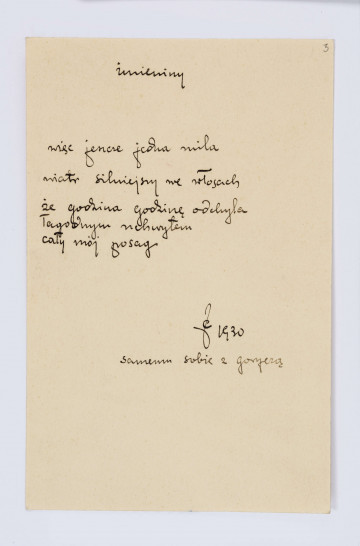 3
imieniny
więc jeszcze jedna mila
wiatr silniejszy we włosach
że godzina godzinę odchyla
łagodnym uchwytem
cały mój posag
1930
samemu sobie z goryczą